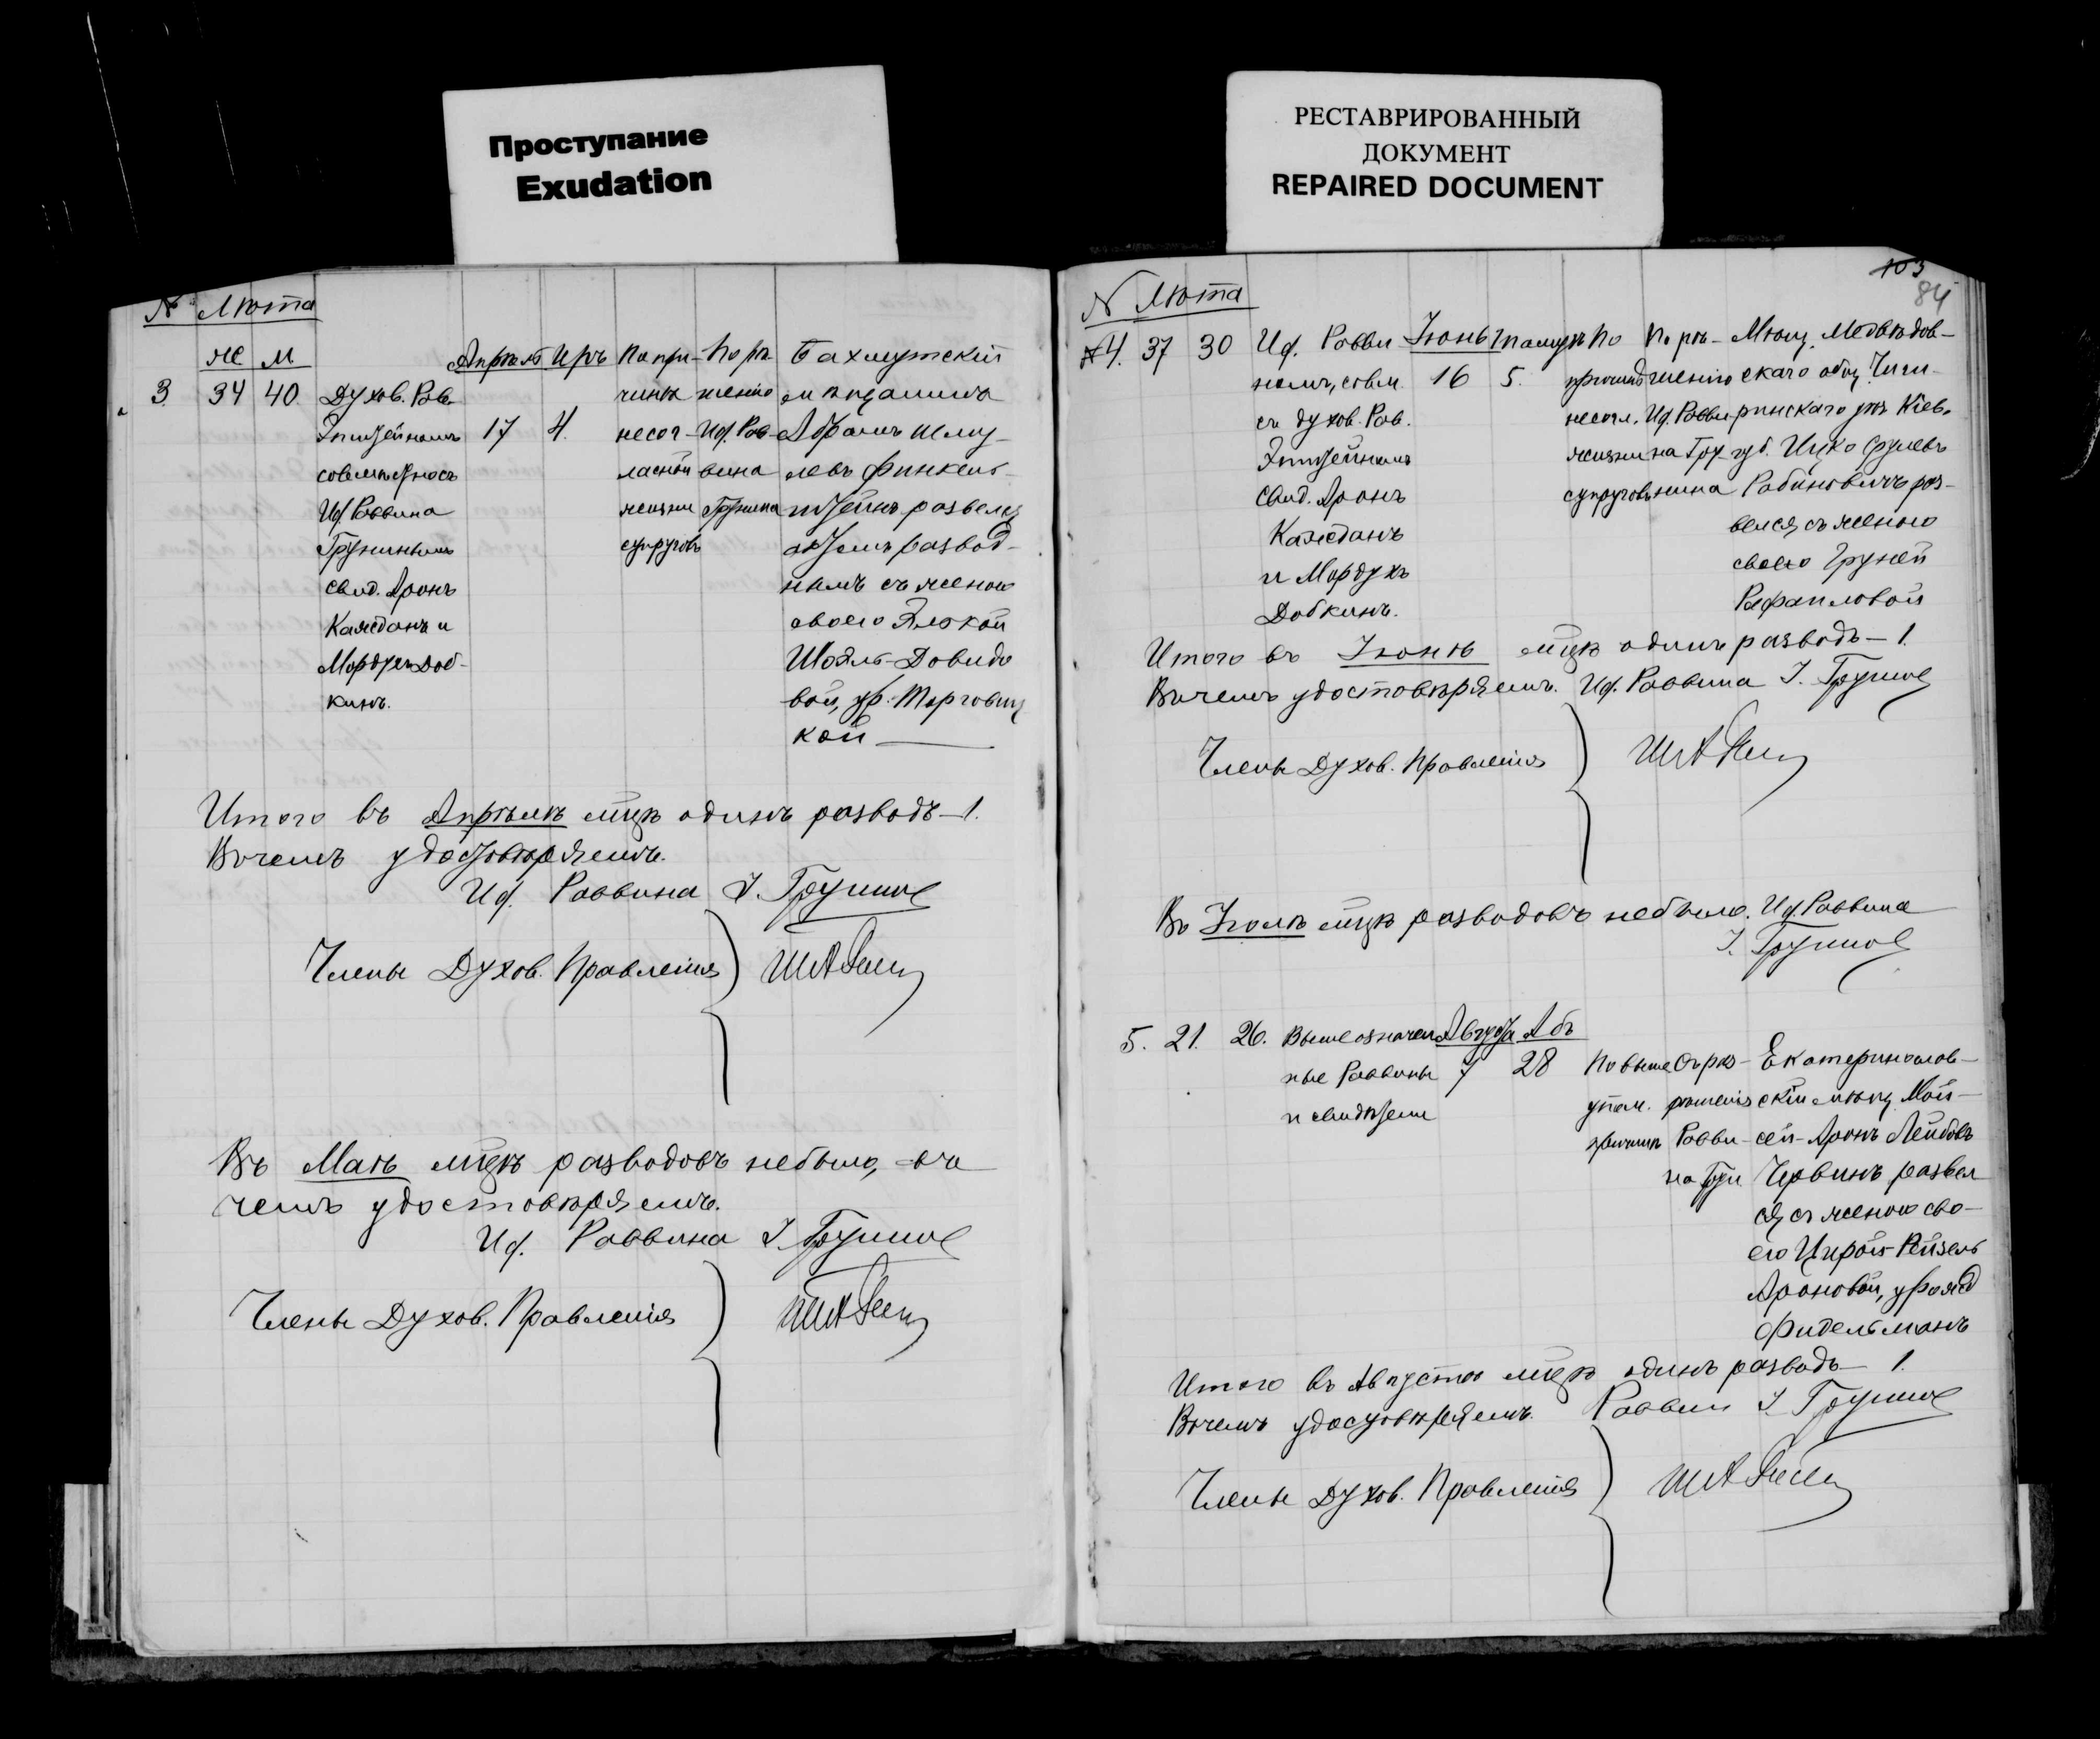 Проступание
Exudation
РЕСТАВРИРОВАННЫЙ
ДОКУМЕНТ
REPAIRED DOCUMENT
№ Лѣта
же м
Апрѣль Иръ
3. 34 40.
Духов. Рав.
Эпштейномъ
совмѣстно съ
Иф. Раввина
Грунинымъ
свид. Аронъ
Каждонъ и
Мордухъ Доб-
кинъ.
17 4.
По при-
чинѣ
несог-
ласной
жизни
супруговъ
По рѣ-
шенію
Иф. Рав-
вина
Грунина
Бахмутскій
мѣщанинъ
Абрамъ Шму-
левъ Финкель-
штейнъ развелся
актомъ развод-
нымъ съ женою
своею Элькой
Шейль-Довидо
вой, ур. Торговиц
кой
Итого въ Апрѣлѣ мцѣ одинъ разводъ - 1.
Вочемъ удостовѣряемъ.
Иф. Раввина І. Грунинъ
Члены Духов. Правленія
Въ Маѣ мцѣ разводовъ небыло, во
чемъ удостовѣряемъ.
Иф. Раввина І. Грунинъ
Члены Духов. Правленія
103
84
№ Лѣта
4. 37 30
Иф. Равви
номъ, совм.
съ духов. Рав.
Эпштейномъ
свид. Аронъ
Каждонъ
и Мордухъ
Добкинъ.
Іюнь Тамузъ
16 5.
По
причинѣ
несогл.
жизни
супруговъ
По рѣ-
шенію
Иф. Равви
на Гру-
нина
Мѣщ. Медвѣдов-
скаго общ. Чиги-
ринскаго уѣз. Кіев.
губ. Ицко Срулевъ
Рабиновичъ раз-
велся съ женою
своею Груней
Рафаиловой
Итого въ Іюнѣ мцѣ одинъ разводъ - 1.
Вочемъ удостовѣряемъ. Иф. Раввина І. Грунинъ
Члены Духов. Правленія
Въ Іюлѣ мцѣ разводовъ небыло. Иф. Раввина
І. Грунинъ
5. 21. 26.
Вышеозначен
ные Раввины
и свидѣтели
Августа Абъ
7 28
По выше
упом.
причинѣ
Съ рѣ-
шенія
Равви-
на Гру
Екатеринослав-
скій мѣщ. Мой-
сей-Аронъ Лейбовъ
Червинъ развел
ся съ женою сво-
ею Цирой-Рейзель
Ароновой, урожд
Фидельманъ
Итого въ Августѣ мцѣ одинъ разводъ - 1.
Вочемъ удостовѣряемъ. Раввин І. Грунинъ
Члены Духов. Правленія